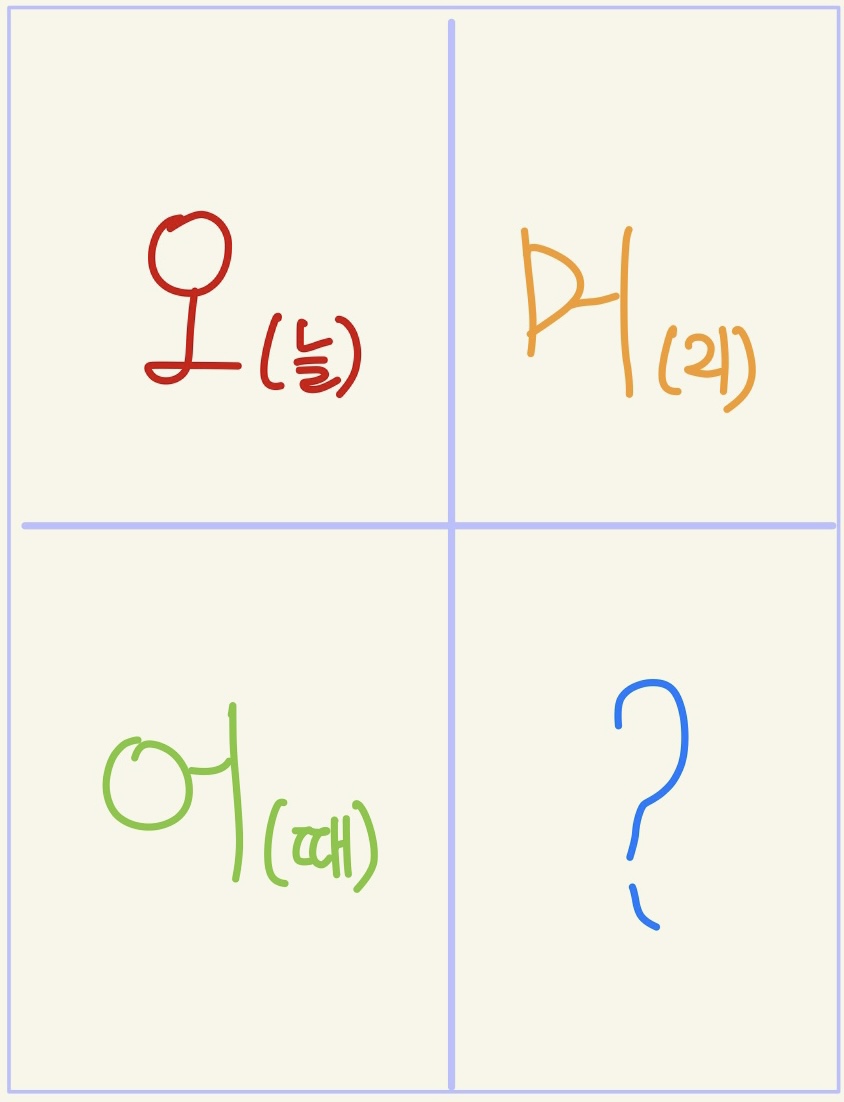 오(늘) 머(리)
어(때) ?